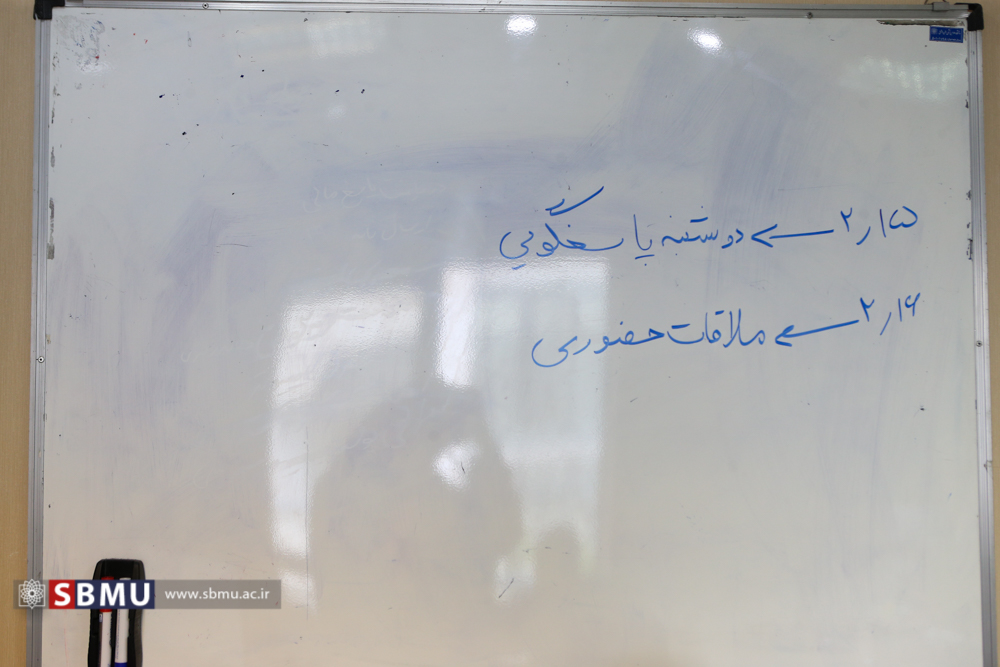 ۲٫۱۵ ← دوشنبه پاسخگویی
۲٫۱۶ ← ملاقات حضوری
SBMU www.sbmu.ac.ir